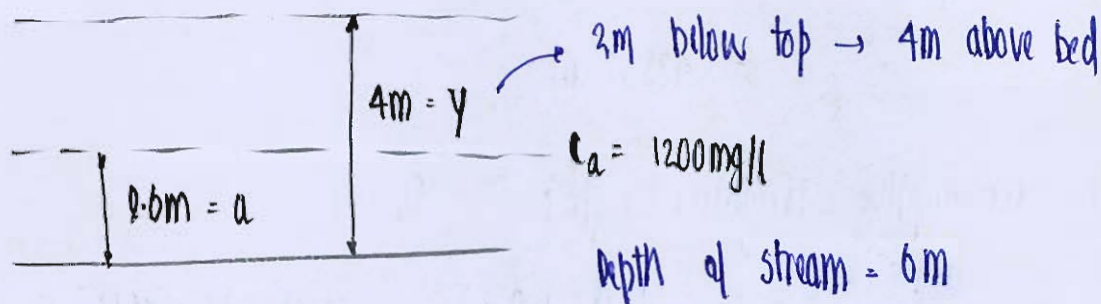 2m below top → 4m above bed
4m = y
Ca = 1200mg/l
0.6m = a
Depth of stream = 6m